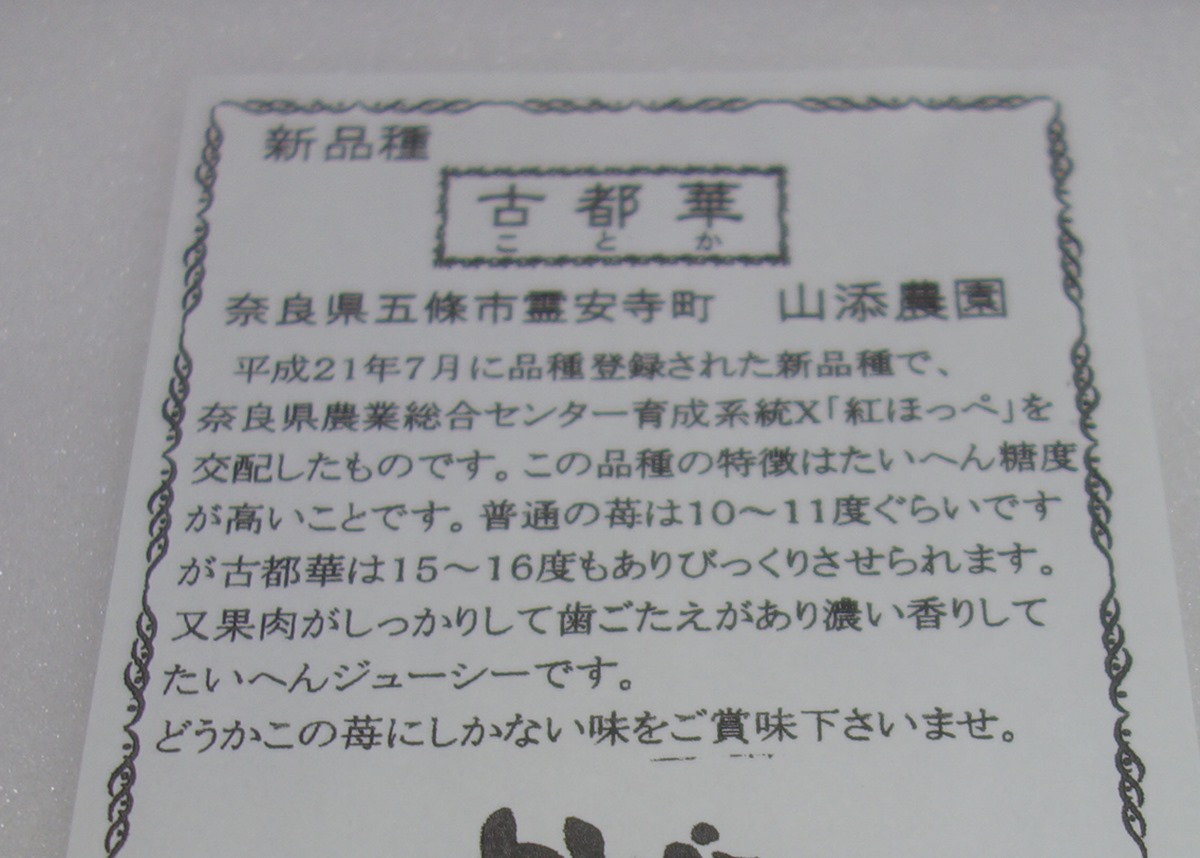 新品種
古都華
ことか
奈良県五條市霊安寺町　山添農園
平成21年7月に品種登録された新品種で、
奈良県農業総合センター育成系統X「紅ほっぺ」を
交配したものです。この品種の特徴はたいへん糖度
が高いことです。普通の苺は10～11度ぐらいです
が古都華は15～16度もありびっくりさせられます。
又果肉がしっかりして歯ごたえがあり濃い香りして
たいへんジューシーです。
どうかこの苺にしかない味をご賞味下さいませ。